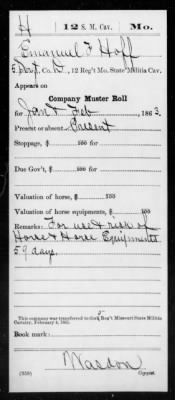 H 12 S. M. Cav. Mo.
Emanuel F Hoff
Pvt., Co. D, 12 Reg't Mo. State Militia Cav.
Appears on
Company Muster Roll
for Jan & Feb, 1863.
Present or absent Present
Stoppage, $ 100 for
Due Gov't, $ 100 for
Valuation of horse, $ 100
Valuation of horse equipments, $ 100
Remarks: For use & risk of
Horse & Horse Equipments
59 days.
This company was transferred to 5 Reg't Missouri State Militia
Cavalry, February 4, 1863.
Book mark:
Wardon
(359) Copyist.